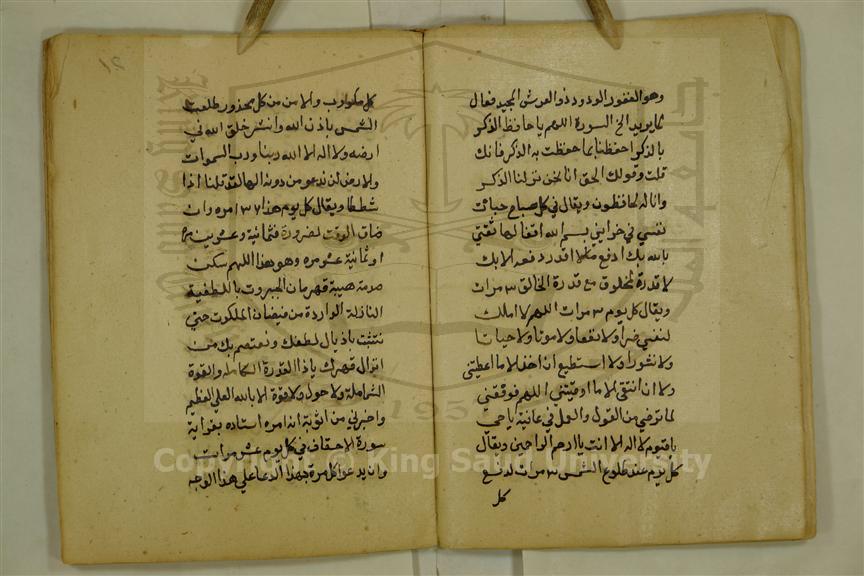 وهو الغفور الودود ذو العرش المجيد فعال
لما يريد الخ السورة اللهم يا حافظ الذكر
بالذكر احفظنا بما حفظت به الذكر فانك
قلت وقولك الحق انا نحن نزلنا الذكر
وانا له لحافظون ويقال في كل صباح
نفسي في خزاين بسم الله اقفالها ثقتي
بالله بك ادفع ما لا اقدر دفعه الا بك
لا قدرة لمخلوق مع قدرة الخالق ٣ مرات
ويقال كل يوم ٣ مرات اللهم لا املك
لنفسي ضرا ولا نفعا ولا موتا ولا حياتا
ولا نشورا ولا استطيع ان اخذ الا ما اعطيتني
ولا ان اتقي الا ما اوقيتني اللهم فوفقني
لما ترضي من القول والعمل في عافية يا حي
يا قيوم لا اله الا انت يا ارحم الراحمين ويقال
كل يوم عند طلوع الشمس ٣ مرات لدفع
كل
21
كل مكروب والامن من كل محذور طلعت
الشمس باذن الله وانتشر خلق الله في
ارضه ولا اله الا الله ربنا ورب السموات
والارض لن ندعو من دونه الها لقد قلنا اذا
شططا ويقال كل يوم هذا ١٣٧ مره وان
ضاق الوقت لضرورة فثمانية وعشرين
او ثمانية عشر مره وهو هذا اللهم سكن
صدمة هيبة قهرمان الجبروت باللطفية
النازلة الواردة من فيضان الملكوت حتي
نتشبث باذيال لطفك ونعتصم بك من
انزال قهرك يا ذا القدرة الكامله والقوة
الشاملة ولا حول ولا قوة الا بالله العلي العظيم
واخبرني من اثق به انه امره استاده بقراية
سورة الاحقاف في كل يوم عشر مرات
وان يدعو كل مرة بهذا الدعا علي هذا الوجه
1957
Copyright © King Saud University